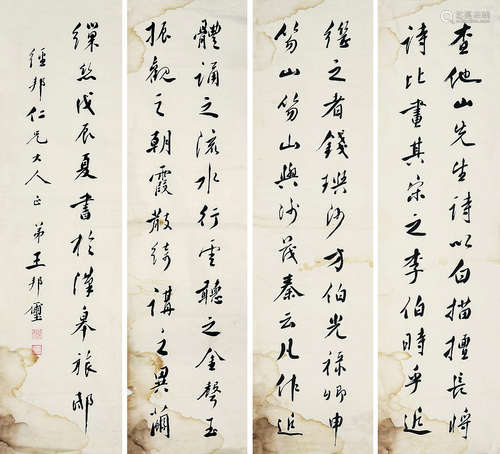 查他山先生诗以白描擅长将
诗比畫其宋之李伯時乎近
繼之者錢璵沙方伯光祿卿申
笏山笏山與沙茂秦云凡作近
體誦之流水行雲聽之金聲玉
振觀之朝霞散綺講之異繭
繅絲戊辰夏書於漢皋旅邸
經邦仁兄大人正 弟王邦璽